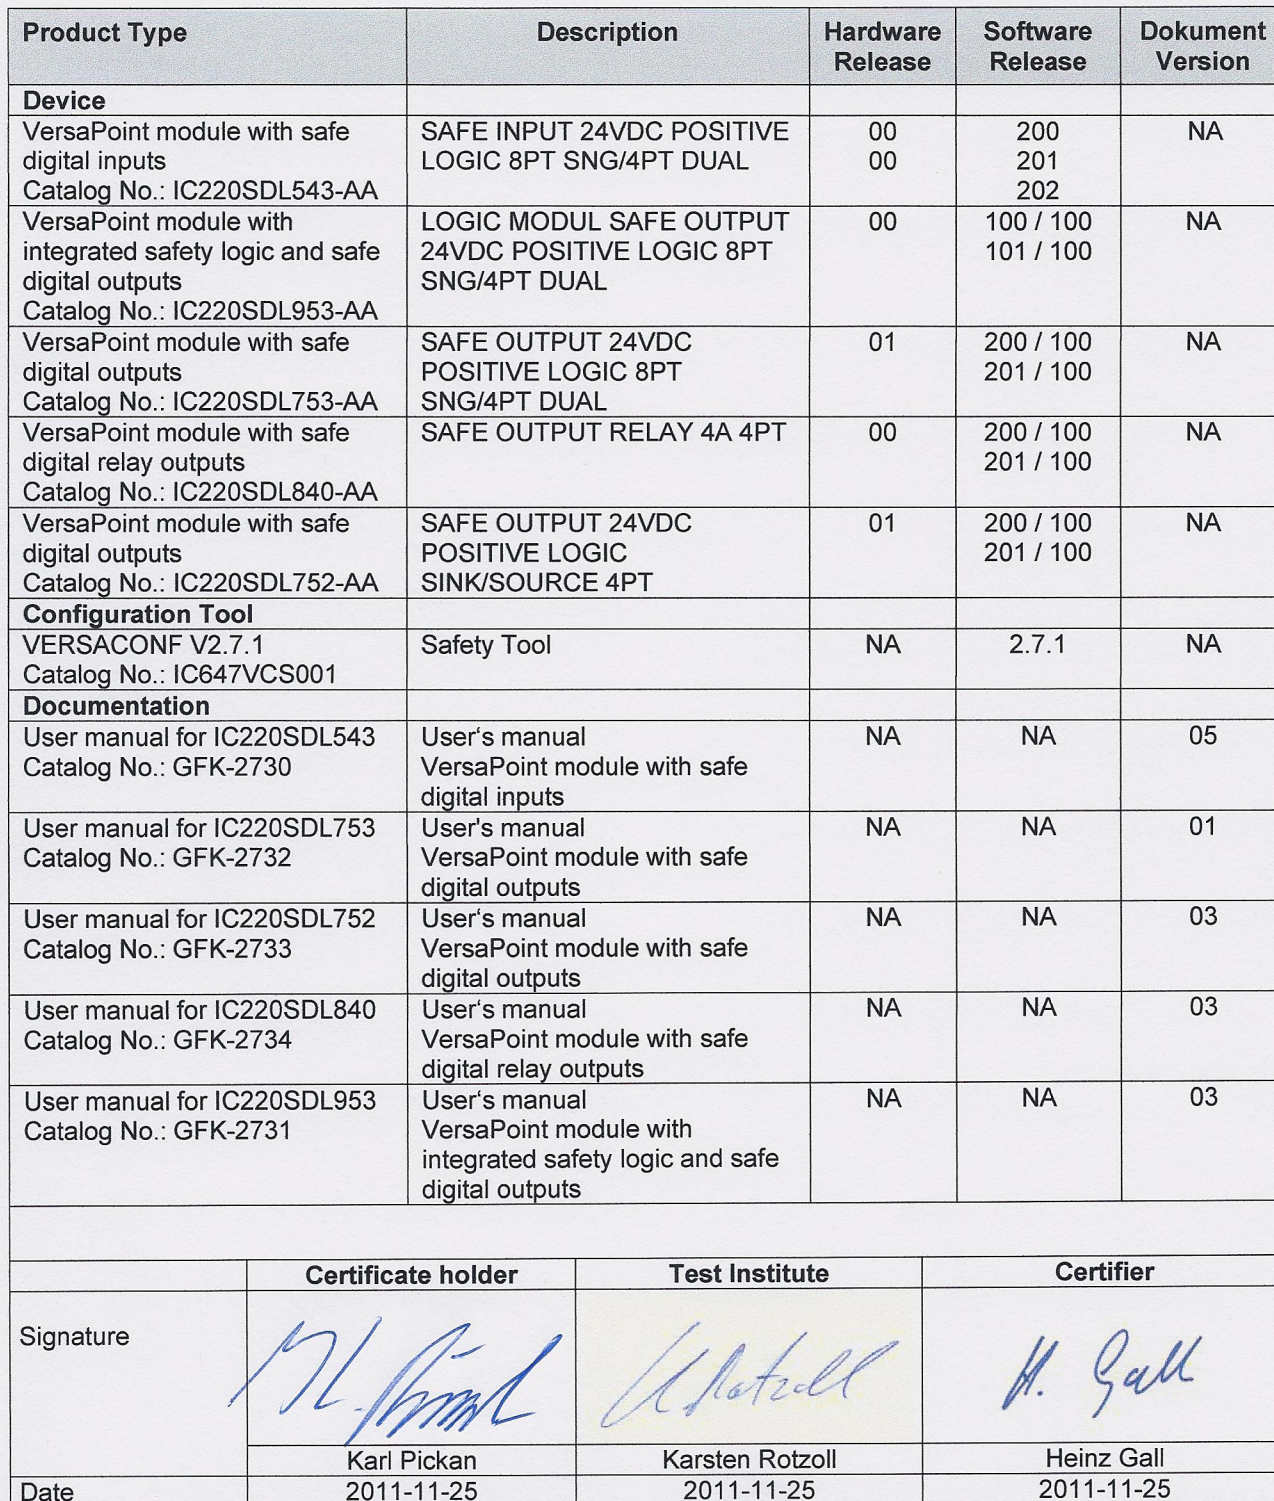 Product Type Description Hardware Release Software Release Dokument Version
Device
VersaPoint module with safe digital inputs Catalog No.: IC220SDL543-AA SAFE INPUT 24VDC POSITIVE LOGIC 8PT SNG/4PT DUAL 00 00 200 201 202 NA
VersaPoint module with integrated safety logic and safe digital outputs Catalog No.: IC220SDL953-AA LOGIC MODUL SAFE OUTPUT 24VDC POSITIVE LOGIC 8PT SNG/4PT DUAL 00 100 / 100 101 / 100 NA
VersaPoint module with safe digital outputs Catalog No.: IC220SDL753-AA SAFE OUTPUT 24VDC POSITIVE LOGIC 8PT SNG/4PT DUAL 01 200 / 100 201 / 100 NA
VersaPoint module with safe digital relay outputs Catalog No.: IC220SDL840-AA SAFE OUTPUT RELAY 4A 4PT 00 200 / 100 201 / 100 NA
VersaPoint module with safe digital outputs Catalog No.: IC220SDL752-AA SAFE OUTPUT 24VDC POSITIVE LOGIC SINK/SOURCE 4PT 01 200 / 100 201 / 100 NA
Configuration Tool
VERSACONF V2.7.1 Catalog No.: IC647VCS001 Safety Tool NA 2.7.1 NA
Documentation
User manual for IC220SDL543 Catalog No.: GFK-2730 User‘s manual VersaPoint module with safe digital inputs NA NA 05
User manual for IC220SDL753 Catalog No.: GFK-2732 User's manual VersaPoint module with safe digital outputs NA NA 01
User manual for IC220SDL752 Catalog No.: GFK-2733 User‘s manual VersaPoint module with safe digital outputs NA NA 03
User manual for IC220SDL840 Catalog No.: GFK-2734 User‘s manual VersaPoint module with safe digital relay outputs NA NA 03
User manual for IC220SDL953 Catalog No.: GFK-2731 User‘s manual VersaPoint module with integrated safety logic and safe digital outputs NA NA 03
Certificate holder Test Institute Certifier
Signature K Rotzoll H. Gall
Karl Pickan Karsten Rotzoll Heinz Gall
Date 2011-11-25 2011-11-25 2011-11-25